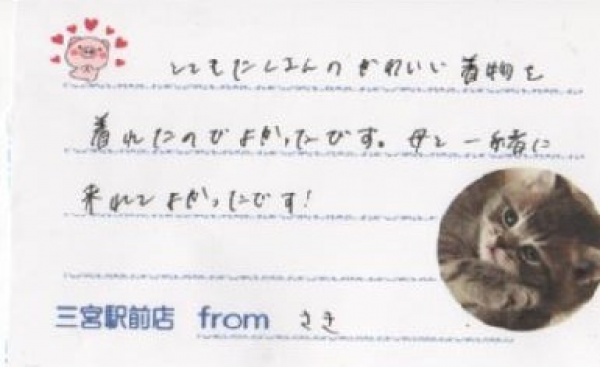 とてもたくさんのかわいい着物を
着れたのでよかったです。母と一緒に
来れてよかったです!
三宮駅前店 from さき